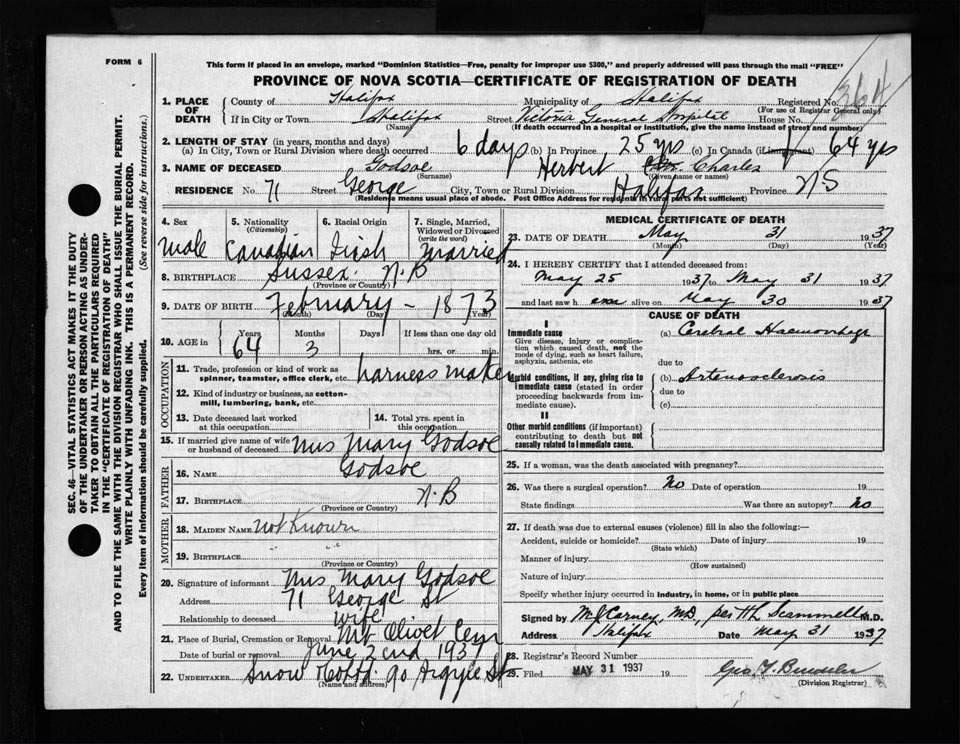 FORM 6
This form if placed in an envelope, marked "Dominion Statistics—Free, penalty for improper use $300," and properly addressed will pass through the mail "FREE"
PROVINCE OF NOVA SCOTIA—CERTIFICATE OF REGISTRATION OF DEATH
1. PLACE OF DEATH County of Halifax Municipality of Halifax Registered No.
(For use of Registrar General only)
If in City or Town Halifax Street Victoria General Hospital House No.
(Name) (If death occurred in a hospital or institution, give the name instead of street and number)
2. LENGTH OF STAY (in years, months and days)
(a) In City, Town or Rural Division where death occurred 6 days (b) In Province 25 yrs (c) In Canada (if immigrant) 64 yrs
3. NAME OF DECEASED Godsoe Herbert Charles
(Surname) (Given name or names)
RESIDENCE No. 71 Street George City, Town or Rural Division Halifax Province N.S
(Residence means usual place of abode. Post Office Address for residents in rural parts not sufficient)
4. Sex 5. Nationality (Citizenship) 6. Racial Origin 7. Single, Married, Widowed or Divorced (write the word)
Male Canadian Irish Married
8. BIRTHPLACE Sussex N.B
(Province or Country)
9. DATE OF BIRTH February - 1873
(Month) (Day) (Year)
10. AGE in Years Months Days If less than one day old
64 3 hrs. or min.
OCCUPATION
11. Trade, profession or kind of work as spinner, teamster, office clerk, etc. harness maker
12. Kind of industry or business, as cotton-mill, lumbering, bank, etc.
13. Date deceased last worked at this occupation 14. Total yrs. spent in this occupation
15. If married give name of wife or husband of deceased Mrs Mary Godsoe
FATHER
16. NAME Godsoe
17. BIRTHPLACE N.B
(Province or Country)
MOTHER
18. MAIDEN NAME not Known
19. BIRTHPLACE " "
(Province or Country)
20. Signature of informant Mrs Mary Godsoe
Address 71 George St
Relationship to deceased wife
21. Place of Burial, Cremation or Removal Mt Olivet Cem
Date of burial or removal June 2nd 1937
22. UNDERTAKER Snow 90 Argyle St
(Name and address)
MEDICAL CERTIFICATE OF DEATH
23. DATE OF DEATH May 31 1937
(Month) (Day) (Year)
24. I HEREBY CERTIFY that I attended deceased from:
May 25 1937 to May 31 1937
and last saw h alive on May 30 1937
CAUSE OF DEATH
I
Immediate cause (a) Cerebral Haemorrhage
Give disease, injury or complication which caused death, not the mode of dying, such as heart failure, asphyxia, asthenia, etc
due to
Morbid conditions, if any, giving rise to immediate cause (stated in order proceeding backwards from immediate cause). (b) Arteriosclerosis
due to
(c)
II
Other morbid conditions (if important) contributing to death but not causally related to immediate cause.
25. If a woman, was the death associated with pregnancy?
26. Was there a surgical operation? No Date of operation 19
State findings Was there an autopsy? No
27. If death was due to external causes (violence) fill in also the following:—
Accident, suicide or homicide? Date of injury 19
(State which)
Manner of injury
(How sustained)
Nature of injury
Specify whether injury occurred in industry, in home, or in public place
Signed by M J Carney, M.D., per H L Scammell M.D.
Address Halifax Date May 31 1937
28. Registrar's Record Number
29. Filed MAY 31 1937 19
(Division Registrar)
SEC. 46—VITAL STATISTICS ACT MAKES IT THE DUTY
OF THE UNDERTAKER OR PERSON ACTING AS UNDER-
TAKER TO OBTAIN ALL THE PARTICULARS REQUIRED
IN THE "CERTIFICATE OF REGISTRATION OF DEATH"
AND TO FILE THE SAME WITH THE DIVISION REGISTRAR WHO SHALL ISSUE THE BURIAL PERMIT.
WRITE PLAINLY WITH UNFADING INK. THIS IS A PERMANENT RECORD.
Every item of information should be carefully supplied. (See reverse side for instructions.)